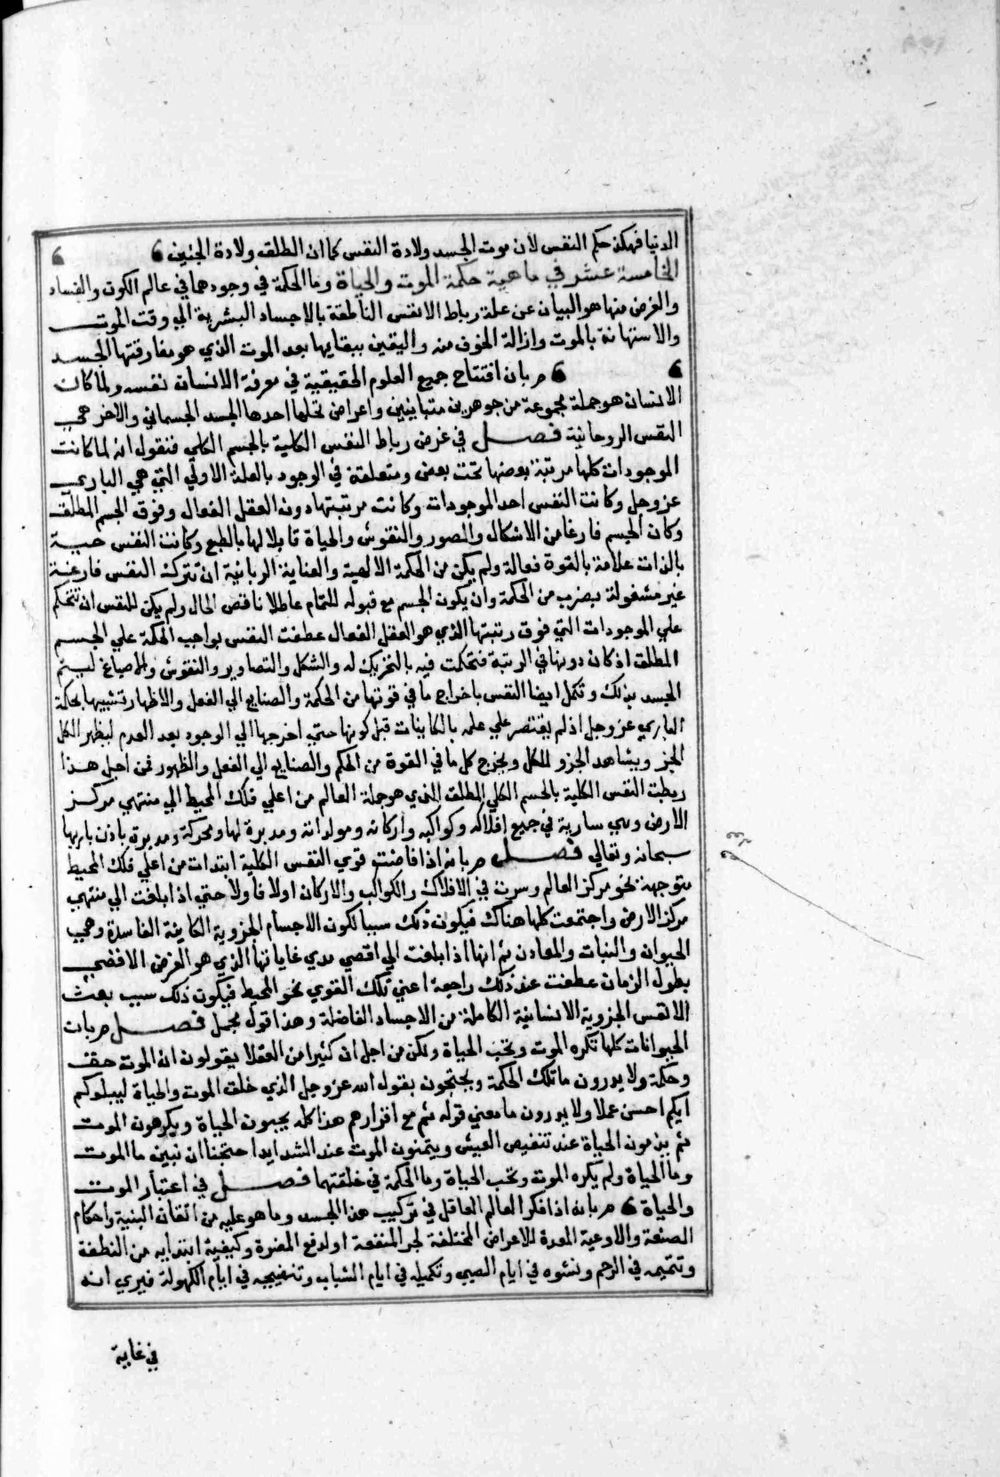 الدنيا فهكذا حكم النفس لان موت الجسد ولادة النفس كما ان الطلق ولادة الجنين
الخامسة عشر في ماهية حكمة الموت والحياة وما الحكمة في وجودهما في عالم الكون والفساد
والغرض منها هو البيان عن علة رباط الانفس الناطقة بالاجساد البشرية الي وقت الموت
والاستهانة بالموت وازالة الخوف منه واليقين ببقايها بعد الموت الذي هو مفارقتها الجسد
بان افتتاح جميع العلوم الحقيقية في معرفة الانسان نفسه ولما كان
الانسان هو جملة مجموعة من جوهرين متباينين واعراض تحلها احدها الجسد الجسماني والاخر هي
النفس الروحانية فصل في غرض رباط النفس الكلية بالجسم الكلي فنقول انه لما كانت
الموجودات كلها مرتبة بعضها تحت بعض ومتعلقة في الوجود بالعلة الاولي التي هي الباري
عز وجل وكانت النفس احد الموجودات وكانت مرتبتها دون العقل الفعال وفوق الجسم المطلق
وكان الجسم فارغا من الاشكال والصور والنقوش والحياة قابلا لها بالطبع وكانت النفس حية
بالذات علامة بالقوة فعالة ولم يكن من الحكمة الالهية والعناية الربانية ان تترك النفس فارغة
غير مشغولة بضرب من الحكمة وان يكون الجسم مع قبوله للتمام عاطلا ناقص الحال ولم يكن للنفس ان تتحكم
علي الموجودات التي فوق رتبتها الذي هو العقل الفعال عطفت النفس بواجب الحكمة علي الجسم
المطلق اذ كان دونها في الرتبة فتحكمت فيه بالتحريك له والشكل والتصاوير والنقوش والاصباغ ليتم
الجسد بذلك وتكمل ايضا النفس باخراج ما في قوتها من الحكمة والصنايع الي الفعل والاظهار تشبيها بحكمة
الباري عز وجل اذ لم يقتصر علي علمه بالكاينات قبل كونها حتي اخرجها الي الوجود بعد العدم ليظهر الكل
الجز ويشاهد الجزو للكل ويخرج كل ما في القوة من الحكم والصنايع الي الفعل والظهور فمن اجل هذا
ربطت النفس الكلية بالجسم الكلي المطلق الذي هو جملة العالم من اعلي فلك المحيط الي منتهي مركز
الارض وهي سارية في جميع افلاكه وكواكبه واركانه ومولداته ومدبرة لها ومحركة ومدبرة باذن باريها
سبحانه وتعالي فصل بانه اذا فاضت قوي النفس الكلية ابتدات من اعلي فلك المحيط
متوجهة نحو مركز العالم وسرت في الافلاك والكواكب والاركان اولا فاولا حتي اذا بلغت الي منتهي
مركز الارض واجتمعت كلها هناك فيكون ذلك سببا لكون الاجسام الجزوية الكاينة الفاسدة وهي
الحيوان والنبات والمعادن ثم انها اذا بلغت الي اقصي مدي غاياتها الذي هو الغرض الاقصي
بطول الزمان عطفت عند ذلك راجعة اعني تلك القوي نحو المحيط فيكون ذلك سبب بعث
الانفس الجزوية الانسانية الكاملة من الاجساد الفاضلة وهذا قول مجمل فصل بان
الحيوانات كلها تكره الموت وتحب الحياة ولكن من اجل ان كثيرا من العقلا يقولون ان الموت حق
وحكمة ولا يدرون ما تلك الحكمة ويحتجون بقول الله عز وجل الذي خلق الموت والحياة ليبلوكم
ايكم احسن عملا ولا يدرون ما معني قوله ثم مع اقرارهم هذا كله يحبون الحياة ويكرهون الموت
ثم يذمون الحياة عند تنغيص العيش ويتمنون الموت عند الشدايد احتجنا ان نبين ما الموت
وما الحياة ولم يكره الموت وتحب الحياة وما الحكمة في خلقتهما فصل في اعتبار الموت
والحياة بانه اذا فكر العالم العاقل في تركيب هذا الجسد وما هو عليه من اتقان البنية واحكام
الصنعة والاوعية المعدة للاعراض المختلفة لجر المنفعة او لدفع المضرة وكيفية ابتدايه من النطفة
وتتميمه في الرحم ونشوه في ايام الصبي وتكميله في ايام الشباب وتنضيجه في ايام الكهولة فيري انه
في غاية